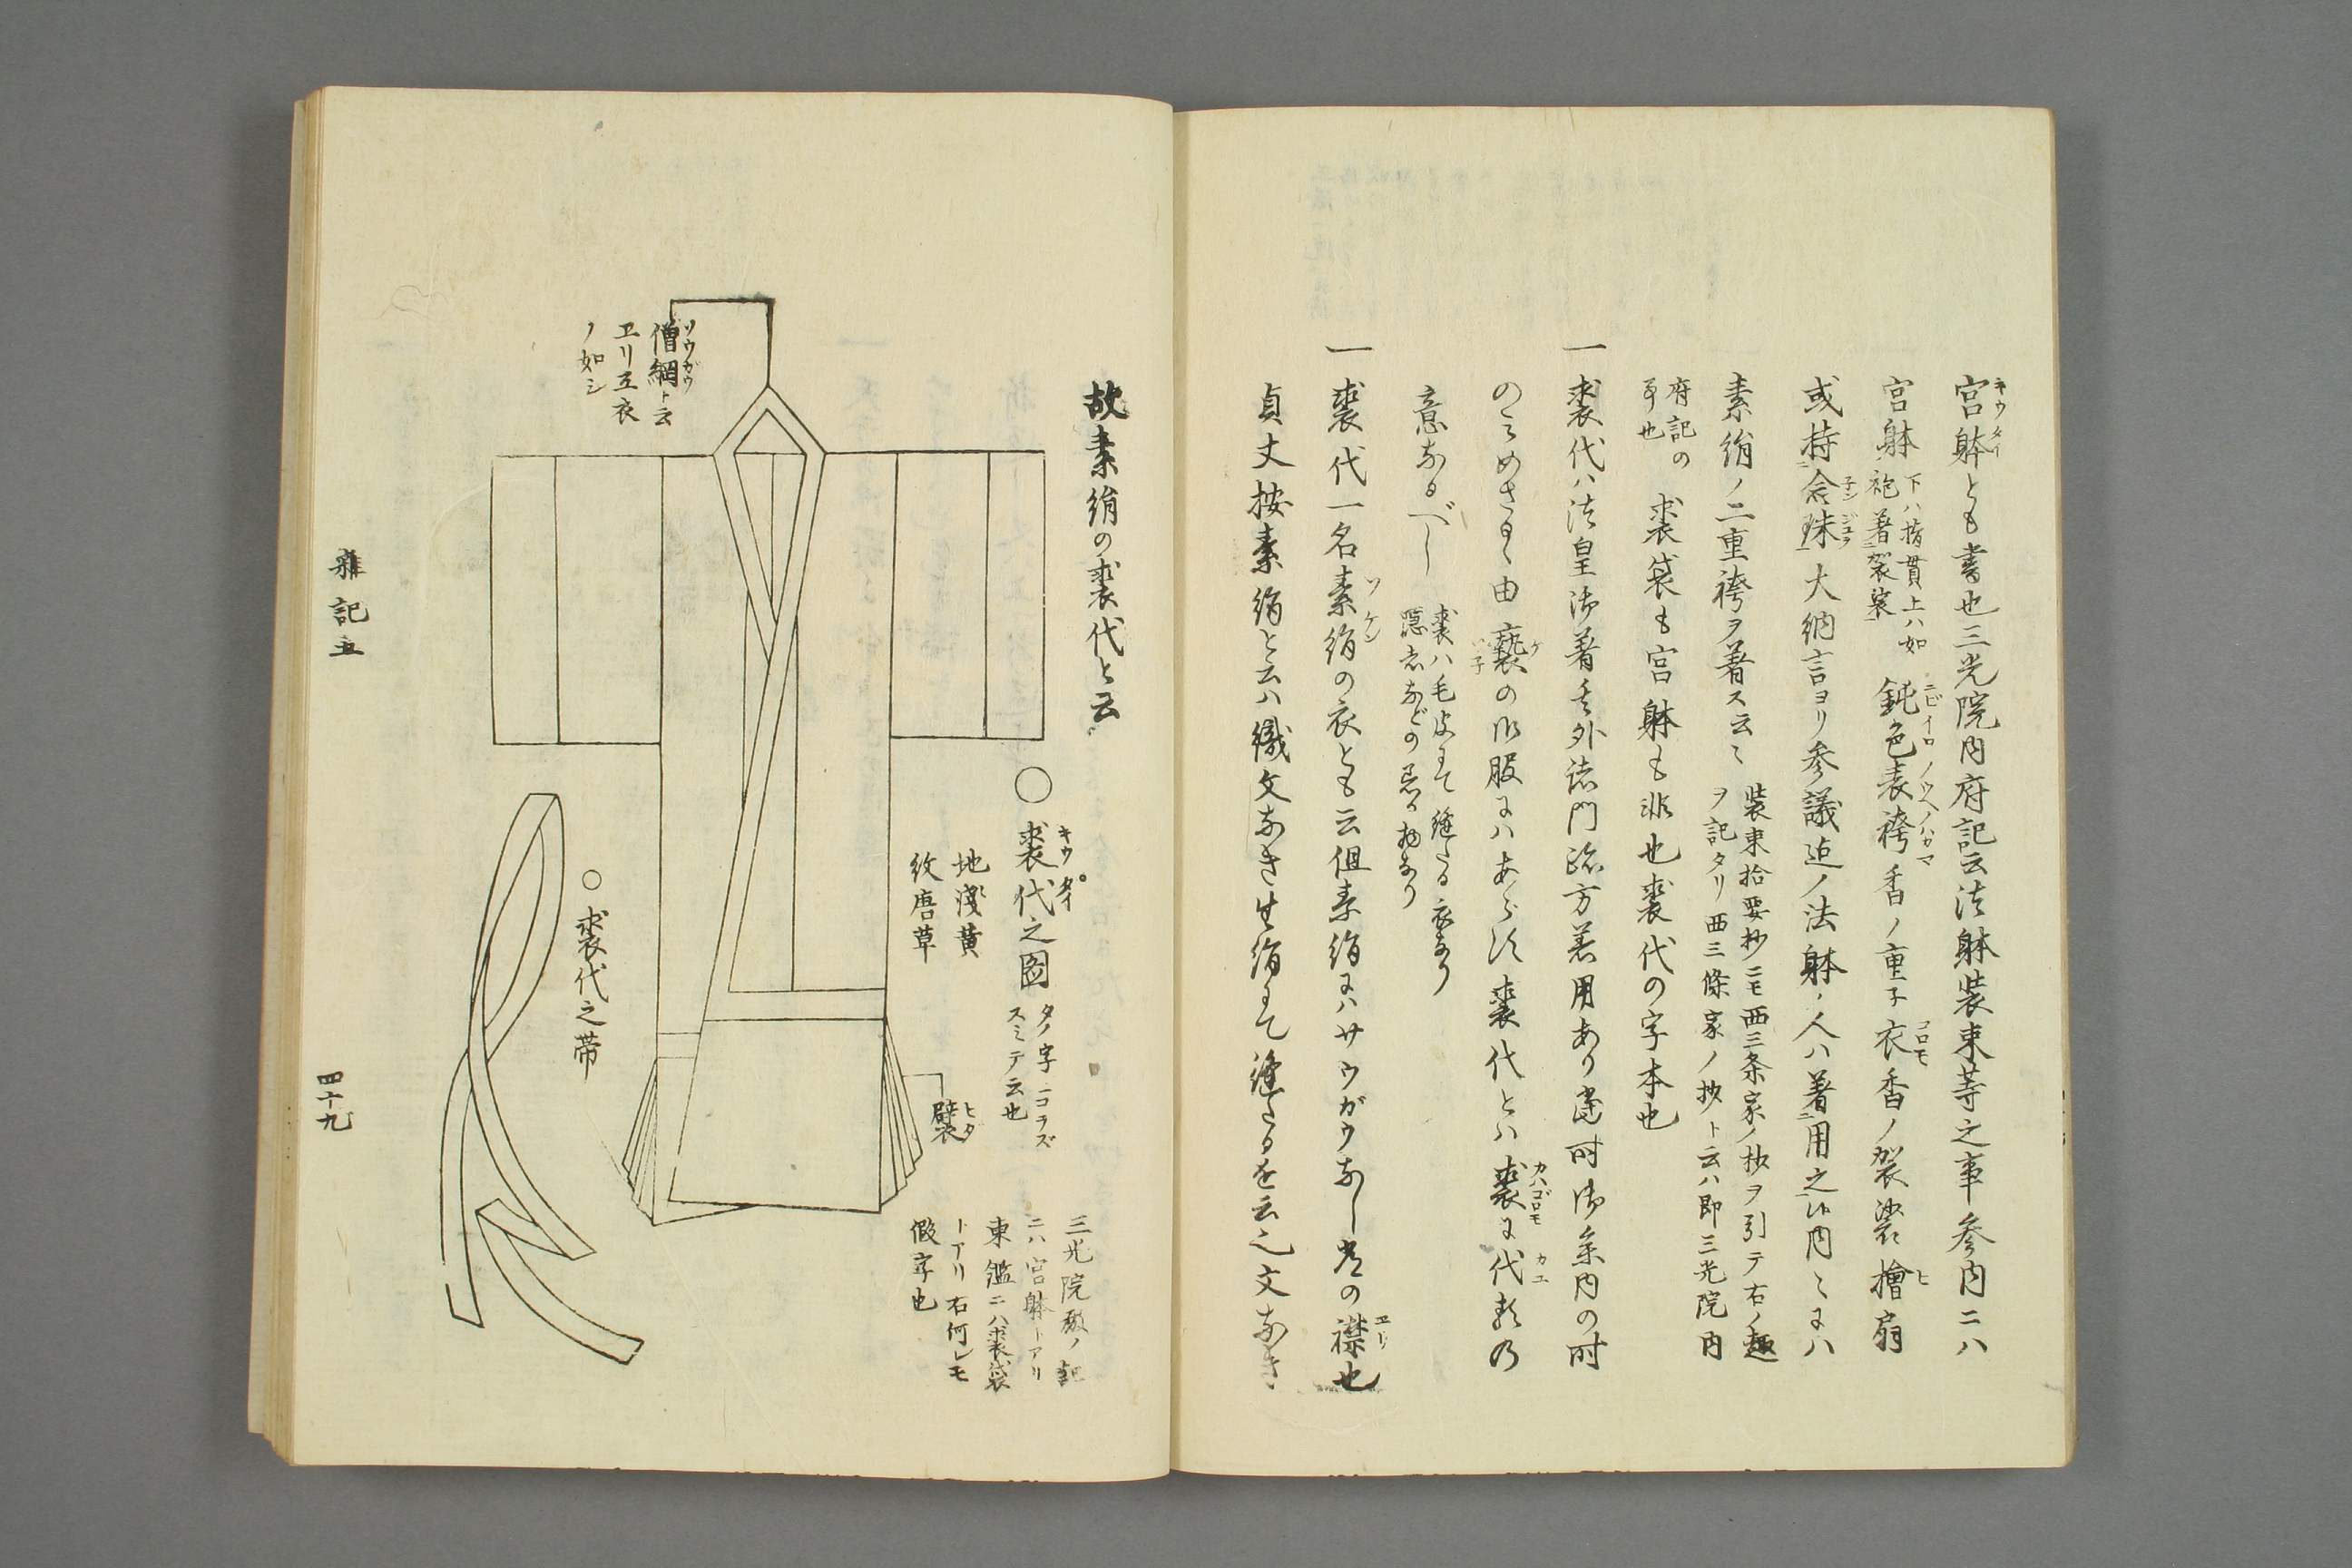 宮躰とも書也三光院内府記云法躰装束等之事参内ニハ
キウタイ
宮躰
下ハ指貫上ハ如
袍著袈裟
鈍色表袴香ノ重子衣香ノ袈裟檜扇
ニビイロノウヘノハカマ
コロモ
ヒ
或持念珠大納言ヨリ参議迠ノ法躰ノ人ハ著用之
子ンジユヲ
素絹ノ二重袴ヲ著ス云々
装束拾要抄ニモ西三条家ノ抄ヲ引テ右ノ趣
ヲ記タリ西三條家ノ抄ト云ハ即三光院内
府記の
事也
裘袋も宮躰も非也裘代の字本也
一裘代ハ法皇御著其外諸門跡方着用あり達时御参内の时
のミめさるゝ由褻の御服にハあらす裘代とハ裘に代るの
ケ
カハゴロモ
カユ
意なるべし
裘ハ毛皮にて縫たる衣なり
隠者などの著る物なり
一裘代一名素絹の衣とも云但素絹にハサウガウなし常の襟也
ソケン
エリ
貞丈按素絹と云ハ織文なき生絹にて縫たるを云之文なき
故素絹の裘代と云
○裘代之圖
キウタイ
タノ字ニコラズ
スミテ云也
地淺黄
紋唐草
襞
ヒダ
三光院殿ノ記
ニハ宮躰トアリ
東鑑ニハ裘袋
トアリ右何レモ
假字也
僧綱ト云
ソウガウ
エリ立衣
ノ如シ
○裘代之帯
雜記五
四十九